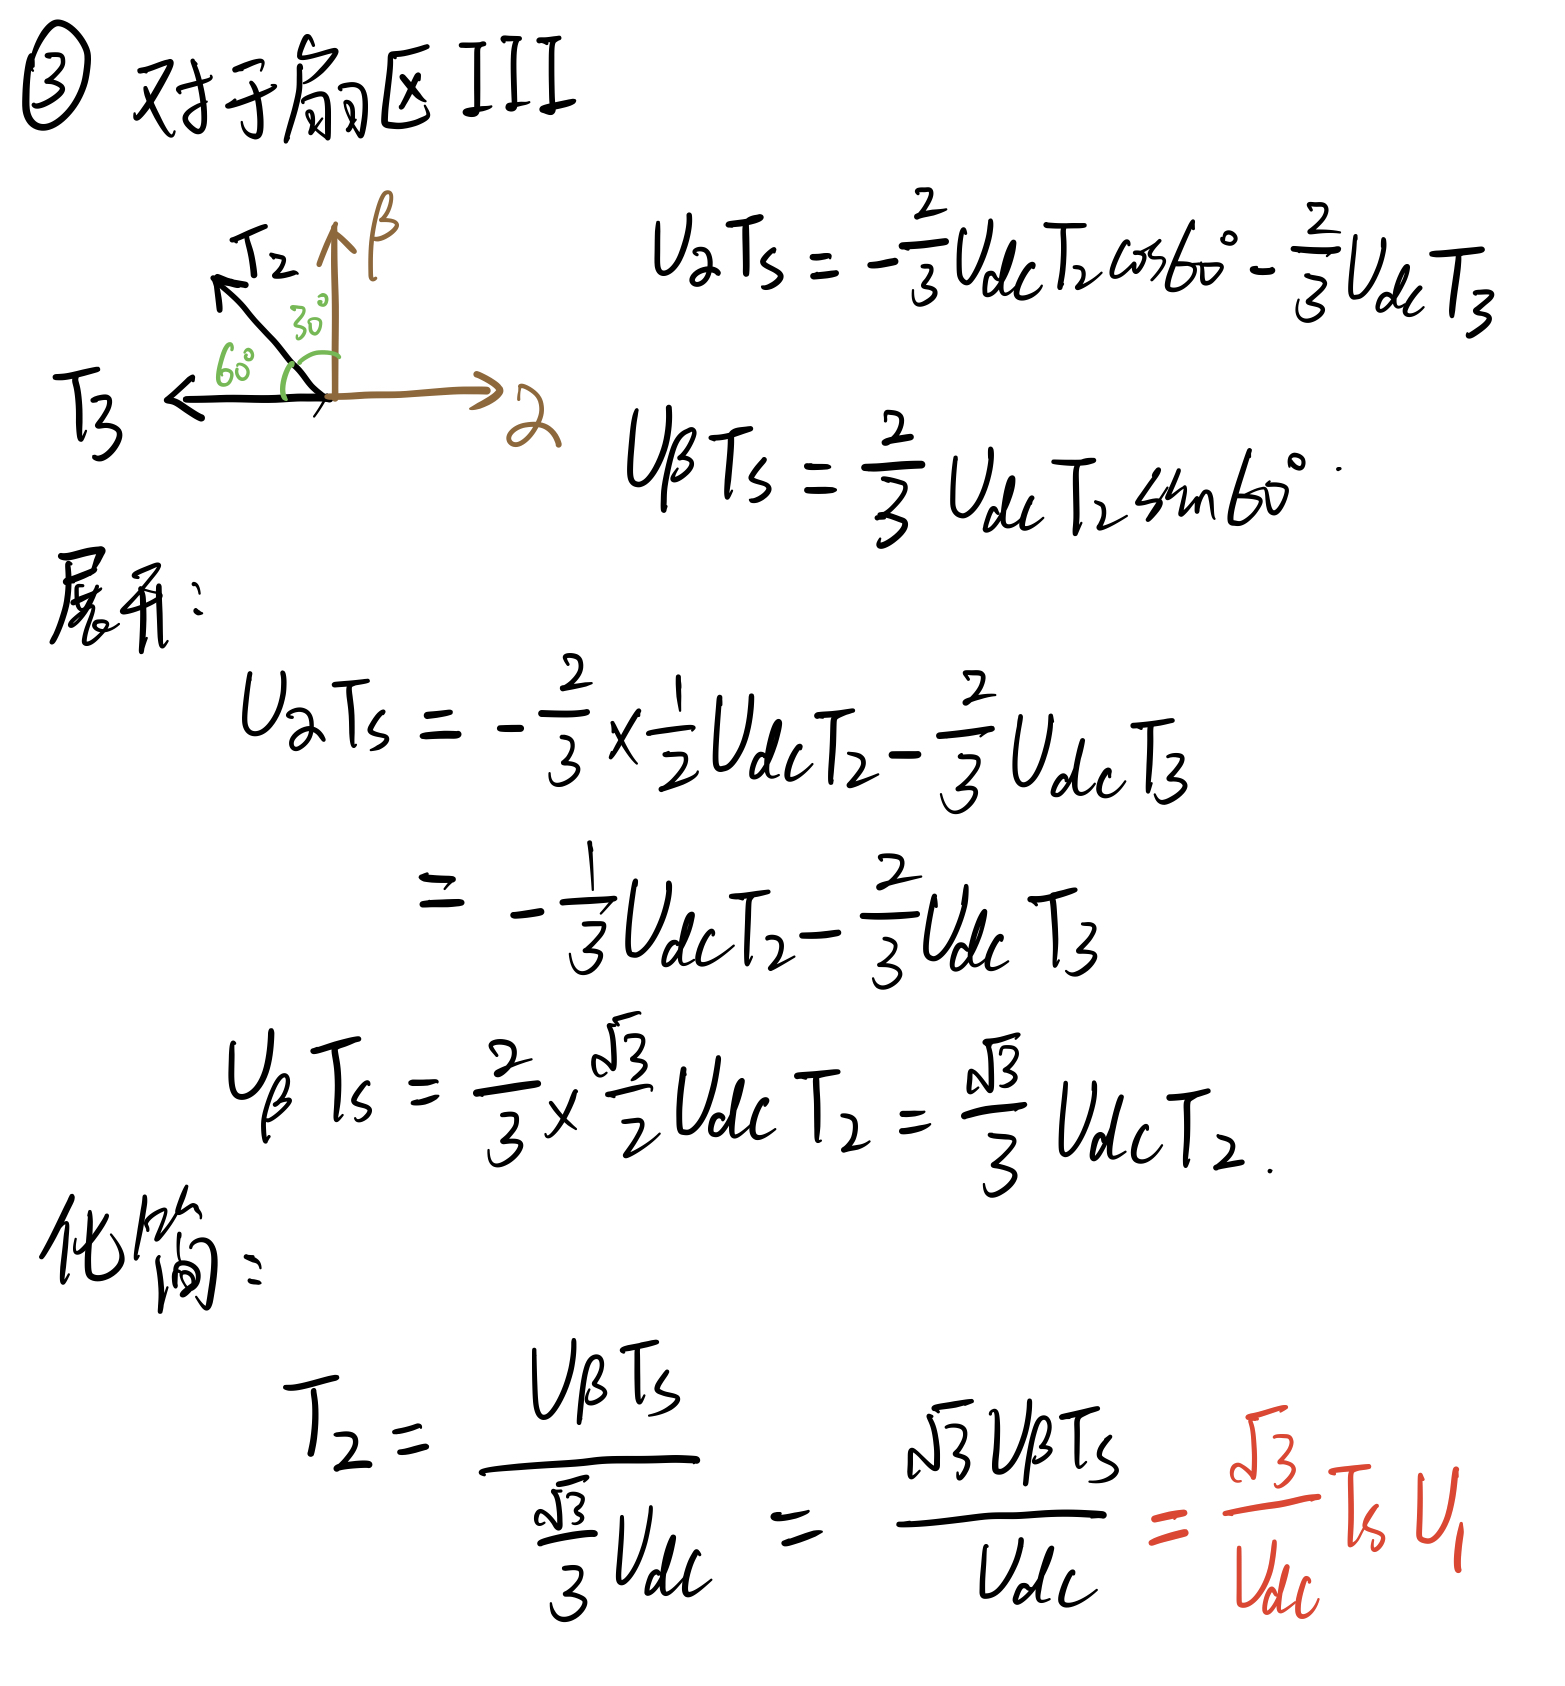 ③ 对于扇区 III
β
T₂
30°
60°
T₃
α
UαTs = -2/3 Udc T₂ cos60° - 2/3 Udc T₃
UβTs = 2/3 Udc T₂ sin60°.
展开:
UαTs = -2/3 × 1/2 Udc T₂ - 2/3 Udc T₃
= -1/3 Udc T₂ - 2/3 Udc T₃
UβTs = 2/3 × √3/2 Udc T₂ = √3/3 Udc T₂.
化简:
T₂ = UβTs / (√3/3 Udc) = √3 UβTs / Udc = √3/Udc Ts U₁